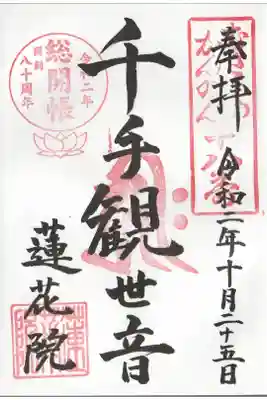 奉拝
令和二年十月二十五日
千手観世音
蓮花院
令和二年
総開帳
開創
八十周年